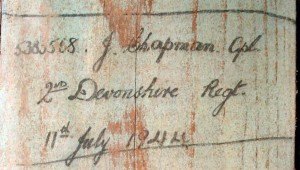 5385568. J. Chapman. Cpl.
2nd Devonshire Regt.
11th July 1944